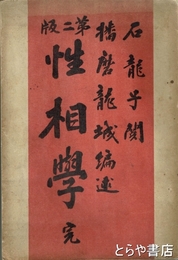 石龍子閲
播磨龍城編述
第二版
性相學 完
とらや書店